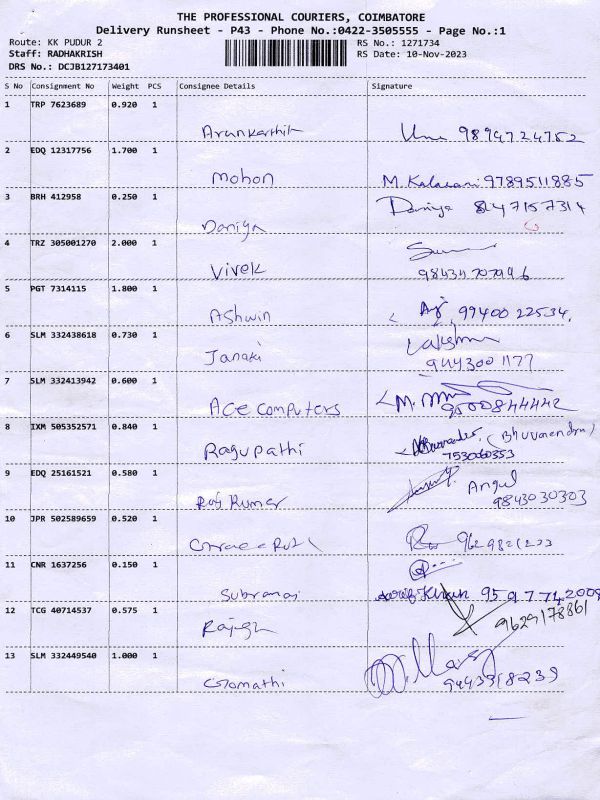 THE PROFESSIONAL COURIERS, COIMBATORE
Delivery Runsheet - P43 - Phone No.:0422-3505555 - Page No.:1
Route: KK PUDUR 2 RS No.: 1271734
Staff: RADHAKRISH RS Date: 10-Nov-2023
DRS No.: DCJB127173401
S No Consignment No Weight PCS Consignee Details Signature
1 TRP 7623689 0.920 1
Arunkarthik Uma 9894724752
2 EDQ 12317756 1.700 1
Mohon M. Kalavani 9789511885
3 BRH 412958 0.250 1
Daniya 8147157314
Daniya
4 TRZ 305001270 2.000 1
Vivek
5 PGT 7314115 1.800 1
Ashwin 99400 22534.
6 SLM 332438618 0.730 1 Lakshmi
Janaki 9443001177
7 SLM 332413942 0.600 1
Ace Computers M. 9500844442
8 IXM 505352571 0.840 1
Ragupathi (Bhuvanendra)
753060353
9 EDQ 25161521 0.580 1
Raj Kumar Angul
9843030303
10 JPR 502589659 0.520 1
11 CNR 1637256 0.150 1
Subramai Kiran
12 TCG 40714537 0.575 1
9629178861
Rajesh
13 SLM 332449540 1.000 1
Gomathi 9443318239